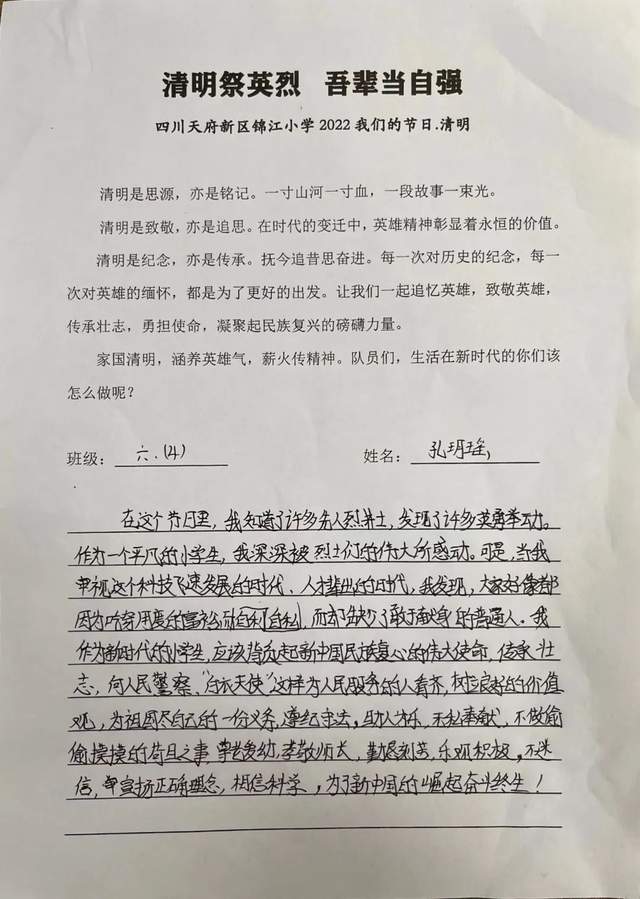 清明祭英烈 吾辈当自强
四川天府新区锦江小学2022我们的节日.清明
清明是思源，亦是铭记。一寸山河一寸血，一段故事一束光。
清明是致敬，亦是追思。在时代的变迁中，英雄精神彰显着永恒的价值。
清明是纪念，亦是传承。抚今追昔思奋进。每一次对历史的纪念，每一
次对英雄的缅怀，都是为了更好的出发。让我们一起追忆英雄，致敬英雄，
传承壮志，勇担使命，凝聚起民族复兴的磅礴力量。
家国清明，涵养英雄气，薪火传精神。队员们，生活在新时代的你们该
怎么做呢？
班级：六.(4) 姓名：孔玥瑶
在这个节日里，我知道了许多名人烈士，发现了许多英勇举动。
作为一个平凡的小学生，我深深被烈士们的伟大所感动。可是，当我
审视这个科技飞速发展的时代、人才辈出的时代，我发现，大家好像都
因为吃穿用度的富裕而自利自私，而却缺少了敢于献身的普通人。我
作为新时代的小学生，应该背负起新中国民族复心的伟大使命，传承壮
志，向人民警察、"白衣天使"这样为人民服务的人看齐，树立良好的价值
观，为祖国尽自己的一份义务，遵纪守法，助人为乐，无私奉献，不做偷
偷摸摸的苟且之事，尊老爱幼，孝敬师长，勤恳刻苦，乐观积极，不迷
信，宣扬正确理念，相信科学，为了新中国的崛起奋斗终生！